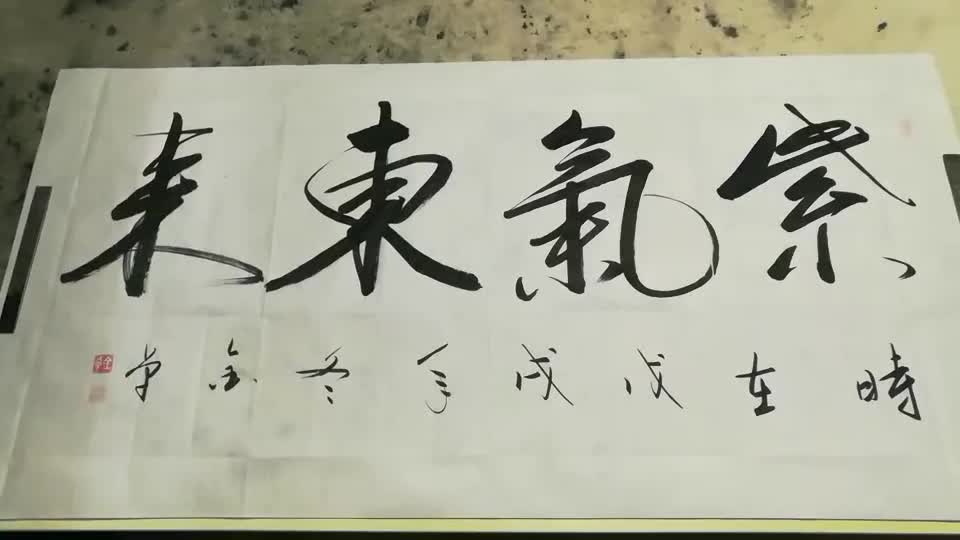 紫氣東来
時在戊戌年冬金